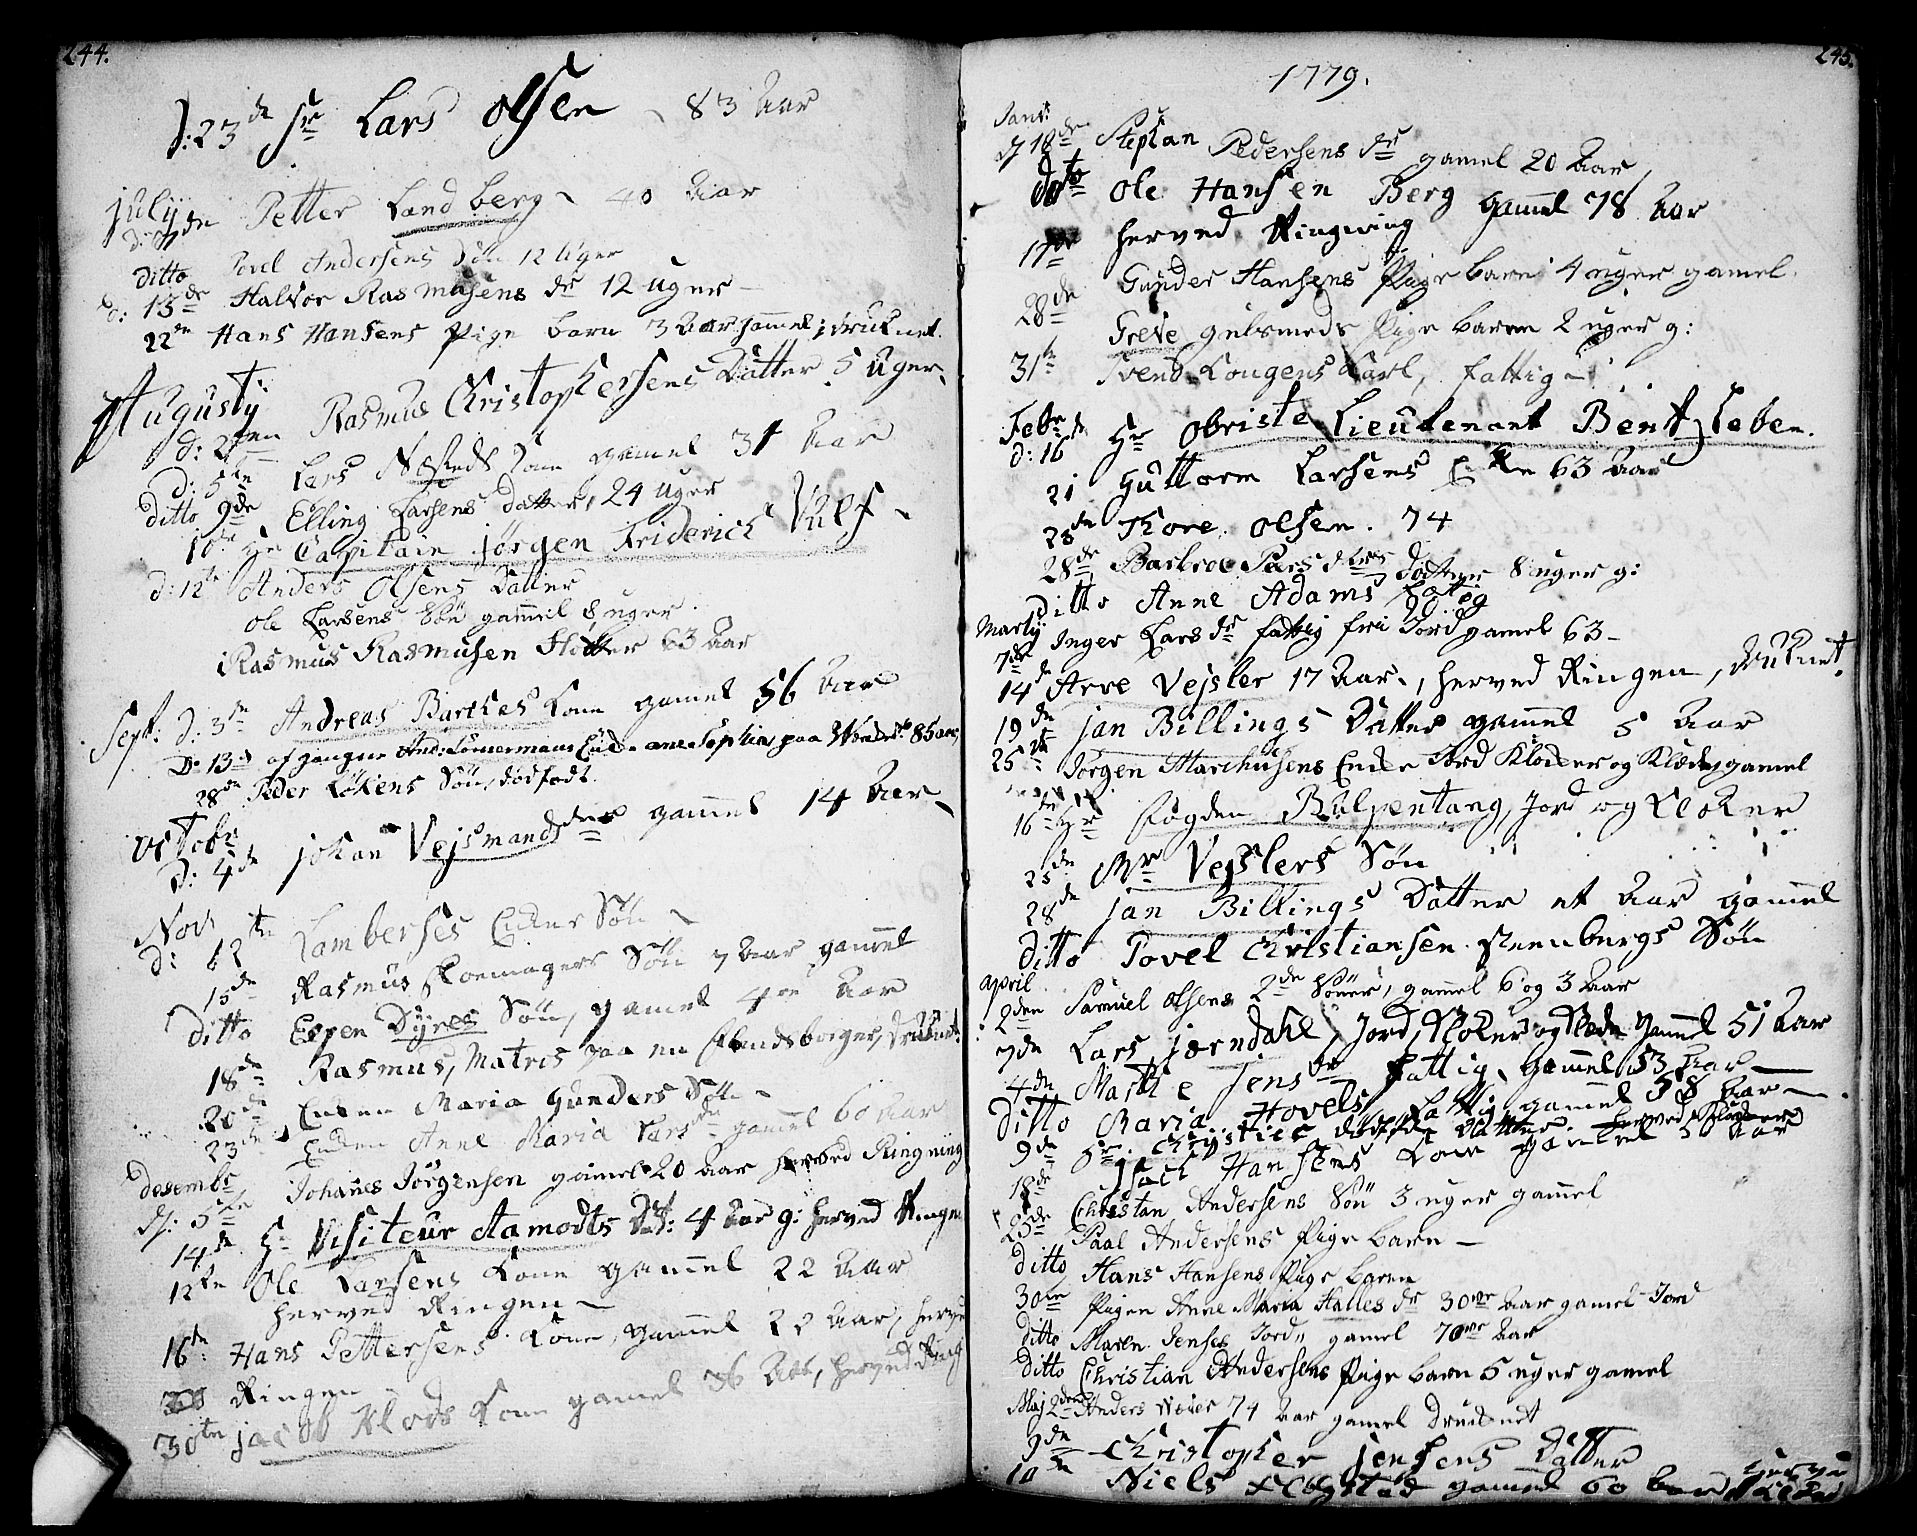 244.
d: 23de Sr Lars Olsen 83 Aar
July
d: 9de Petter Landberg 40 Aar
ditto Povel Andersens Søn 12 Uger
d: 13de Halvor Rasmusens dr 12 uger
22de Hans Hansens Pige barn 3 Aar gammel, druknet.
Augusty
d: 2den Rasmus Christophersens Datter 5 Uger
d: 5te Lars Næsteds Kone gamel 31 Aar
ditto 9de Elling Larsens datter, 24 uger
10de Hr Capitain Jørgen Friderich Vulf
d: 12te Anders Olsens Datter
Ole Larsens Søn gammel 8 uger
Rasmus Rasmusen 63 Aar
Sept: d: 3de Andreas Barthes Kone gamel 56 Aar
D: 13de afgangne And: Enke ane Sophia paa 85 aar
28de Peder Løkens Søn, dødfødt.
Octobr
D: 4de Johan Vejsmands gammel 14 Aar
Nov
d: 12te Lamberses Enkes Søn
15de Rasmus Skoemagers Søn 7 Aar gammel
ditto Espen Dyres Søn, gamel 4re Aar
18de Rasmus, Matros paa en Flændsborger, druknet
20de Enken Maria Gunders Søn
23de Enken Anne Maria Larsdr gammel 60 Aar
desembr
d: 5te Johanes Jørgensen gamel 20 Aar herved Ringning
14de Hr Visiteur Aamodts Dat: 4 Aar g: herved Ringen
12te Ole Larsens Kone gammel 22 Aar
herved Ringen
16de Hans Pettersens Kone, gammel 20 Aar, herved
Ringen
30te Jacob Klods Kone gamel 36 Aar, herved Ring
245.
1779.
Janr:
d 18de Stephan Pedersens dr gamel 20 Aar
dito Ole Hansen Berg gammel 78 Aar
herved Ringning
17de Gunder Hansens Pige barn 4 uger gamel
28de Greve gulsmeds Pige barn 2 uger g:
31te Svend Lougens Karl, fattig
Febr
d: 16de Hr Obriste Lieutenant Bentzleben.
21 Guttorm Larsens Enke 63 Aar
23de Thore Olsen. 74
28de Barbroe Pers dotter 8 uger g:
ditto Anne Adams fatig
Marty
7de Inger Lars dr fattig fri Jord gamel 63
14de Arve Vejsler 17 Aar, herved Ringen, druknet.
19de Jan Billings Datter gammel 5 Aar
25de Jørgen Marchusens Enke Jord Klocker og Klæde gamel
16de Hr fogden Bulpentang, Jord og Klocker
25de Mr Vejslers Søn
28de Jan Billings Datter et Aar gammel
ditto Povel Christiansen Steenbergs Søn
april
2den Samuel Olsens 2de Sønner, gammel 6 og 3 Aar
7de Lars Jærndahl, Jord, Klocker og Klæde gammel 51 Aar
4de Marthe Jensdr fattig, gammel 53 Aar
ditto Maria Hovels, fattig, gamel 58 Aar
9de Sr. Chrysties dødfødte Datter
18de Isach Hansens Kone gammel 50 Aar
23de Christan Andersens Søn 3 uger gammel
25de Paal Andersens Pige barn
ditto Hans Hansens Pige barn
30te Pigen Anne Maria Halles dr 30 Aar gamel Jord
ditto Maren Jenses Jord gamel 70 Aar
ditto Christian Andersens Pige barn 5 uger gamel
Maj 2den Anders Næver 74 Aar gamel druknet
9de Christopher Jensens Datter
10de Niels gammel 60 Aar